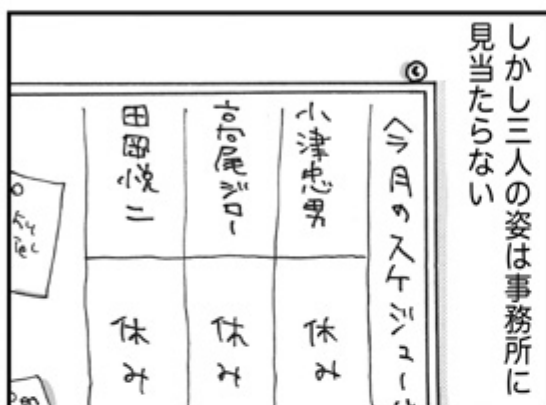 しかし三人の姿は事務所に
見当たらない
今月のスケジュール
小津忠男
休み
高尾ジロー
休み
田岡悦二
休み